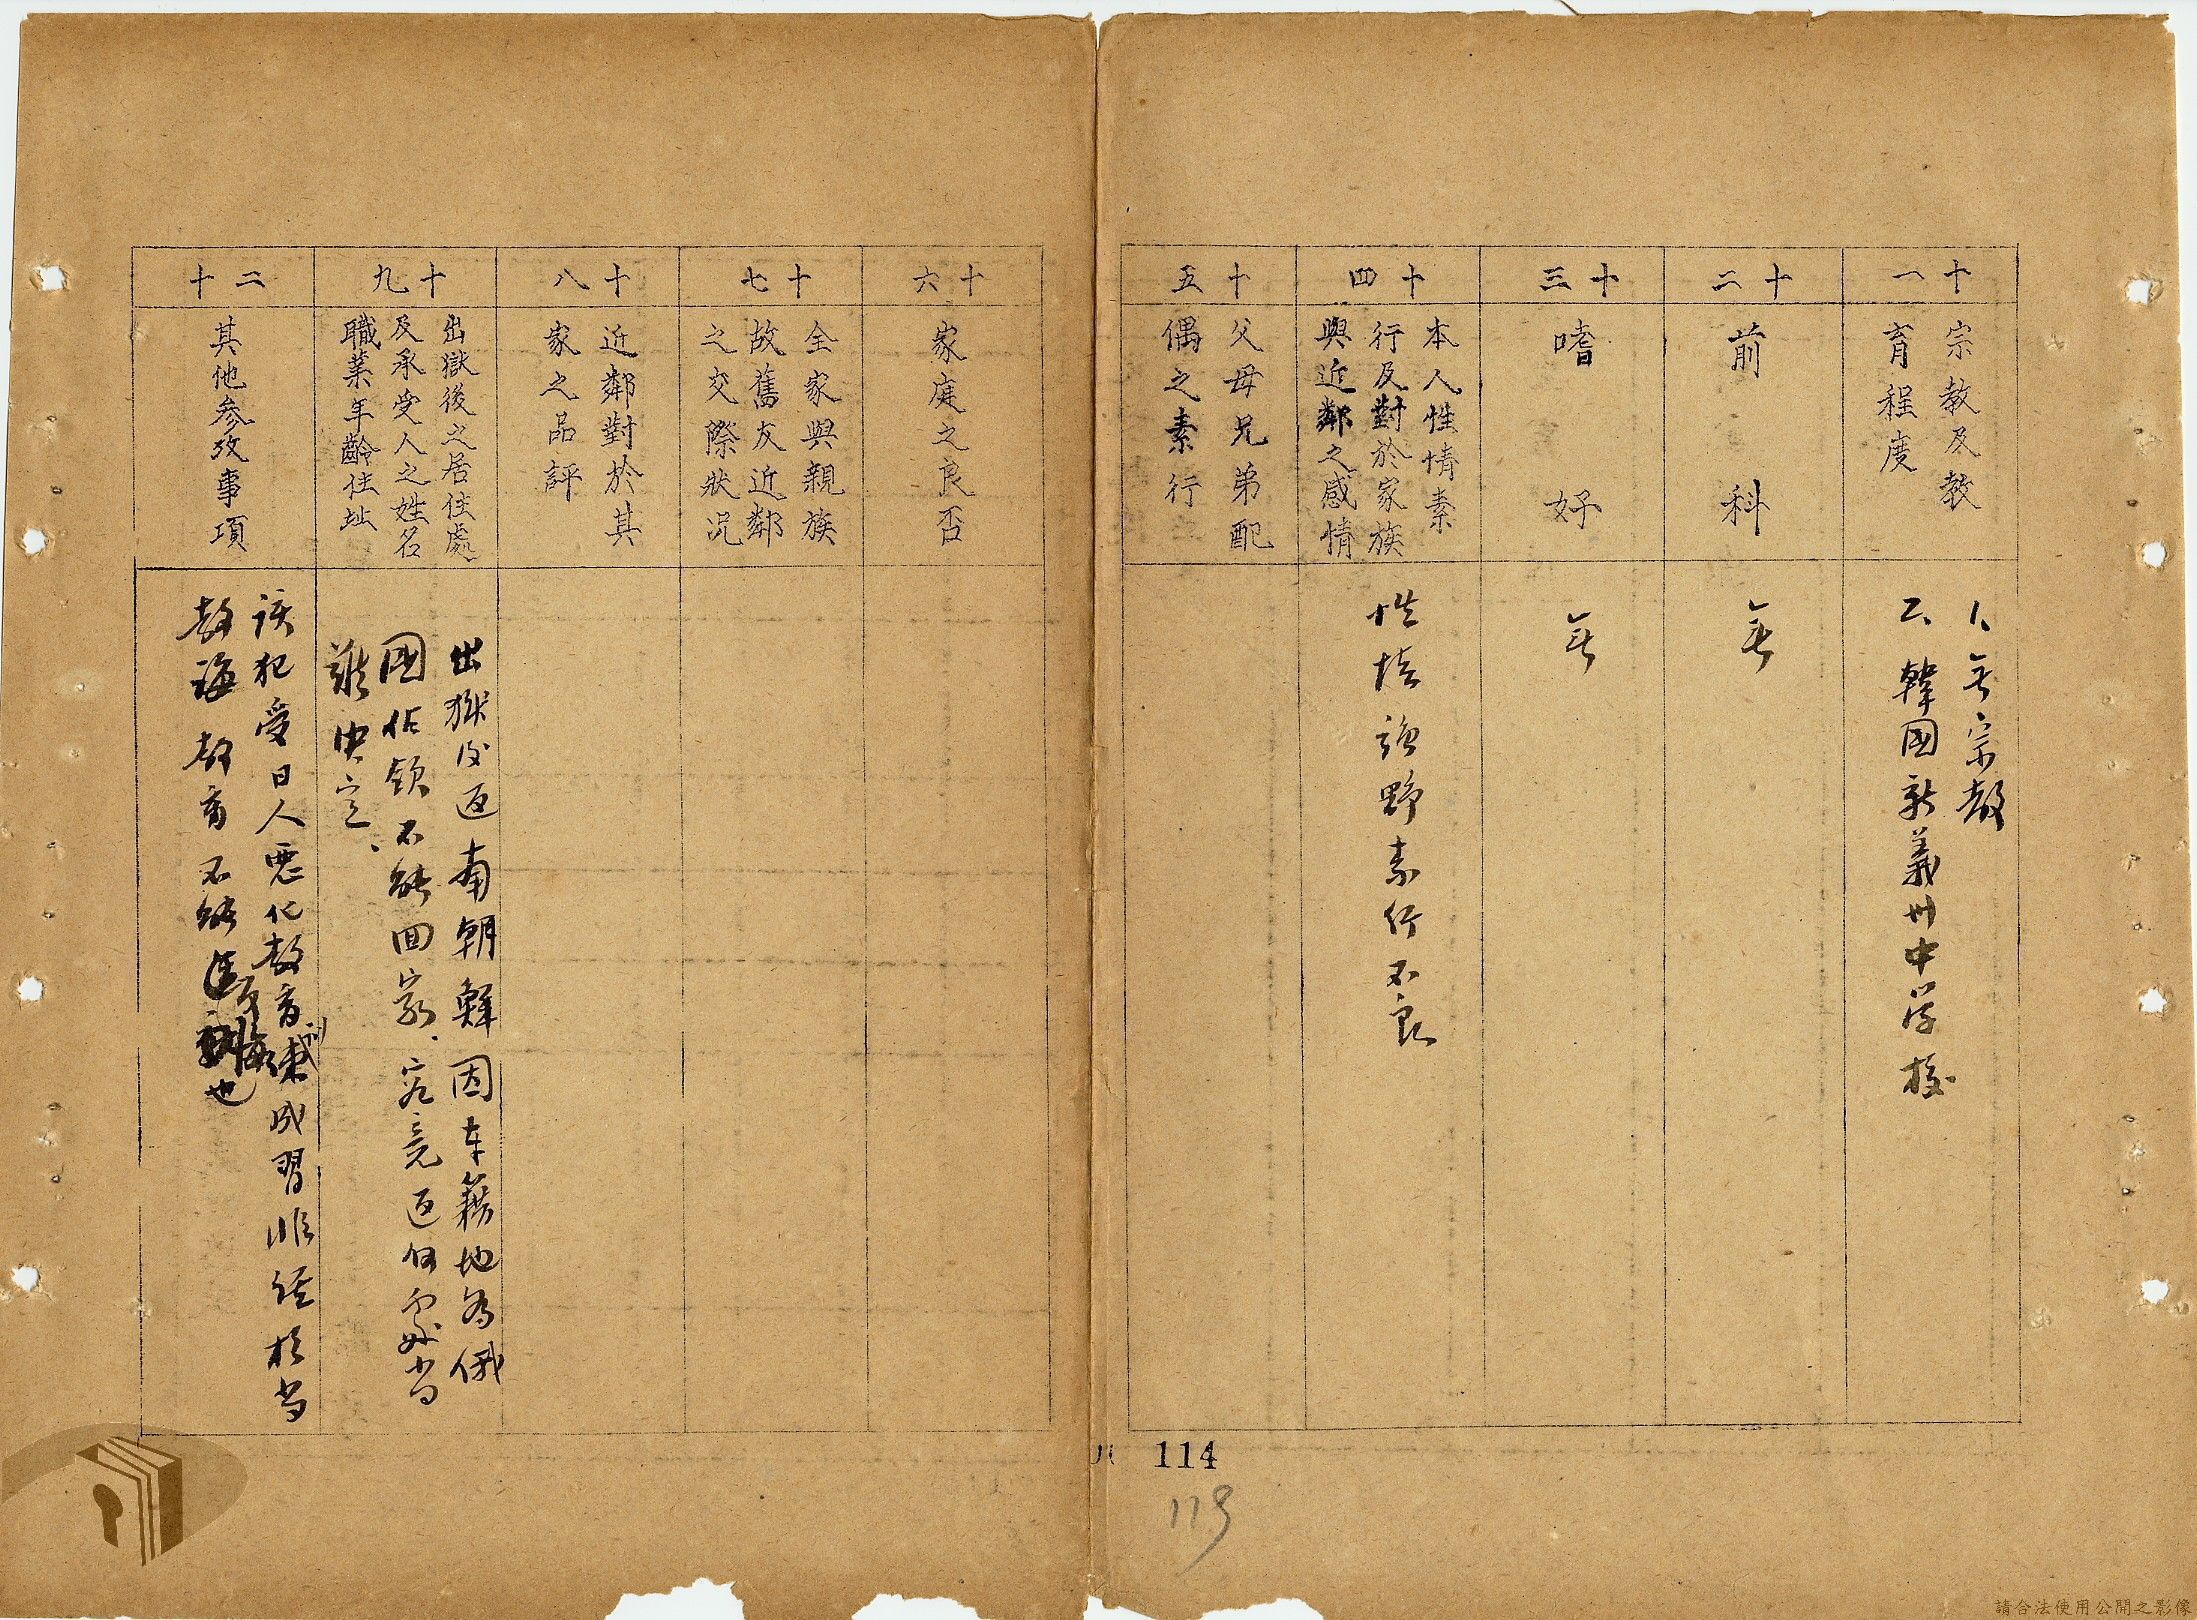 十一
宗教及教
育程度
1、无宗教
2、韓國新義州中学校
十二
前科
无
十三
嗜好
无
十四
本人性情素
行及對於家族
與近鄰之感情
性情強野素行不良
十五
父母兄弟配
偶之素行
十六
家庭之良否
十七
全家與親族
故舊友近鄰
之交際狀况
十八
近鄰對於其
家之品評
十九
出獄後之居住處
及承受人之姓名
職業年齡住址
出獄后返南朝鮮因本籍地為俄
國佔領不能回家、究竟返何處当
難决定、
二十
其他參攷事項
該犯受日人惡化教育成習非經相当
教誨教育不能也
114
119
請合法使用公開之影像